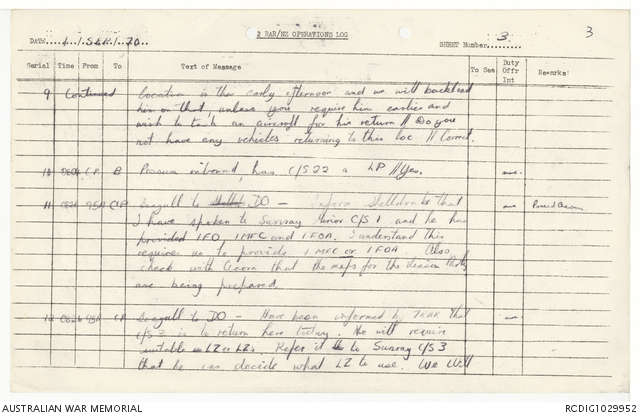 2 RAR/NZ OPERATIONS LOG
DATE 1 / SEP / 70 SHEET Number 3 3
Serial Time From To Text of Message To See Duty Offr Int Remarks
9 Continued Location is the early afternoon and we will backload
him on that unless you require him earlier and
wish to task an aircraft for his return // Do you
not have any vehicles returning to this loc // Correct.
10 CP B inbound, has C/S 22 a LP // Yes.
11 95A CP Seagull to DO - Inform that
I have spoken to Sunray C/S 1 and he has
provided 1 FO, 1 MFC and 1 FOA. I understand this
requires us to provide 1 MFC or 1 FOA Also
check with Acorn that the maps for the
are being prepared
12 95A CP Seagull to DO - Have been informed by that
C/S 3 is to return here today. He will require
suitable LZ or LZs. Refer it to Sunray C/S 3
that he can decide what LZ to use. We will
AUSTRALIAN WAR MEMORIAL RCDIG1029952